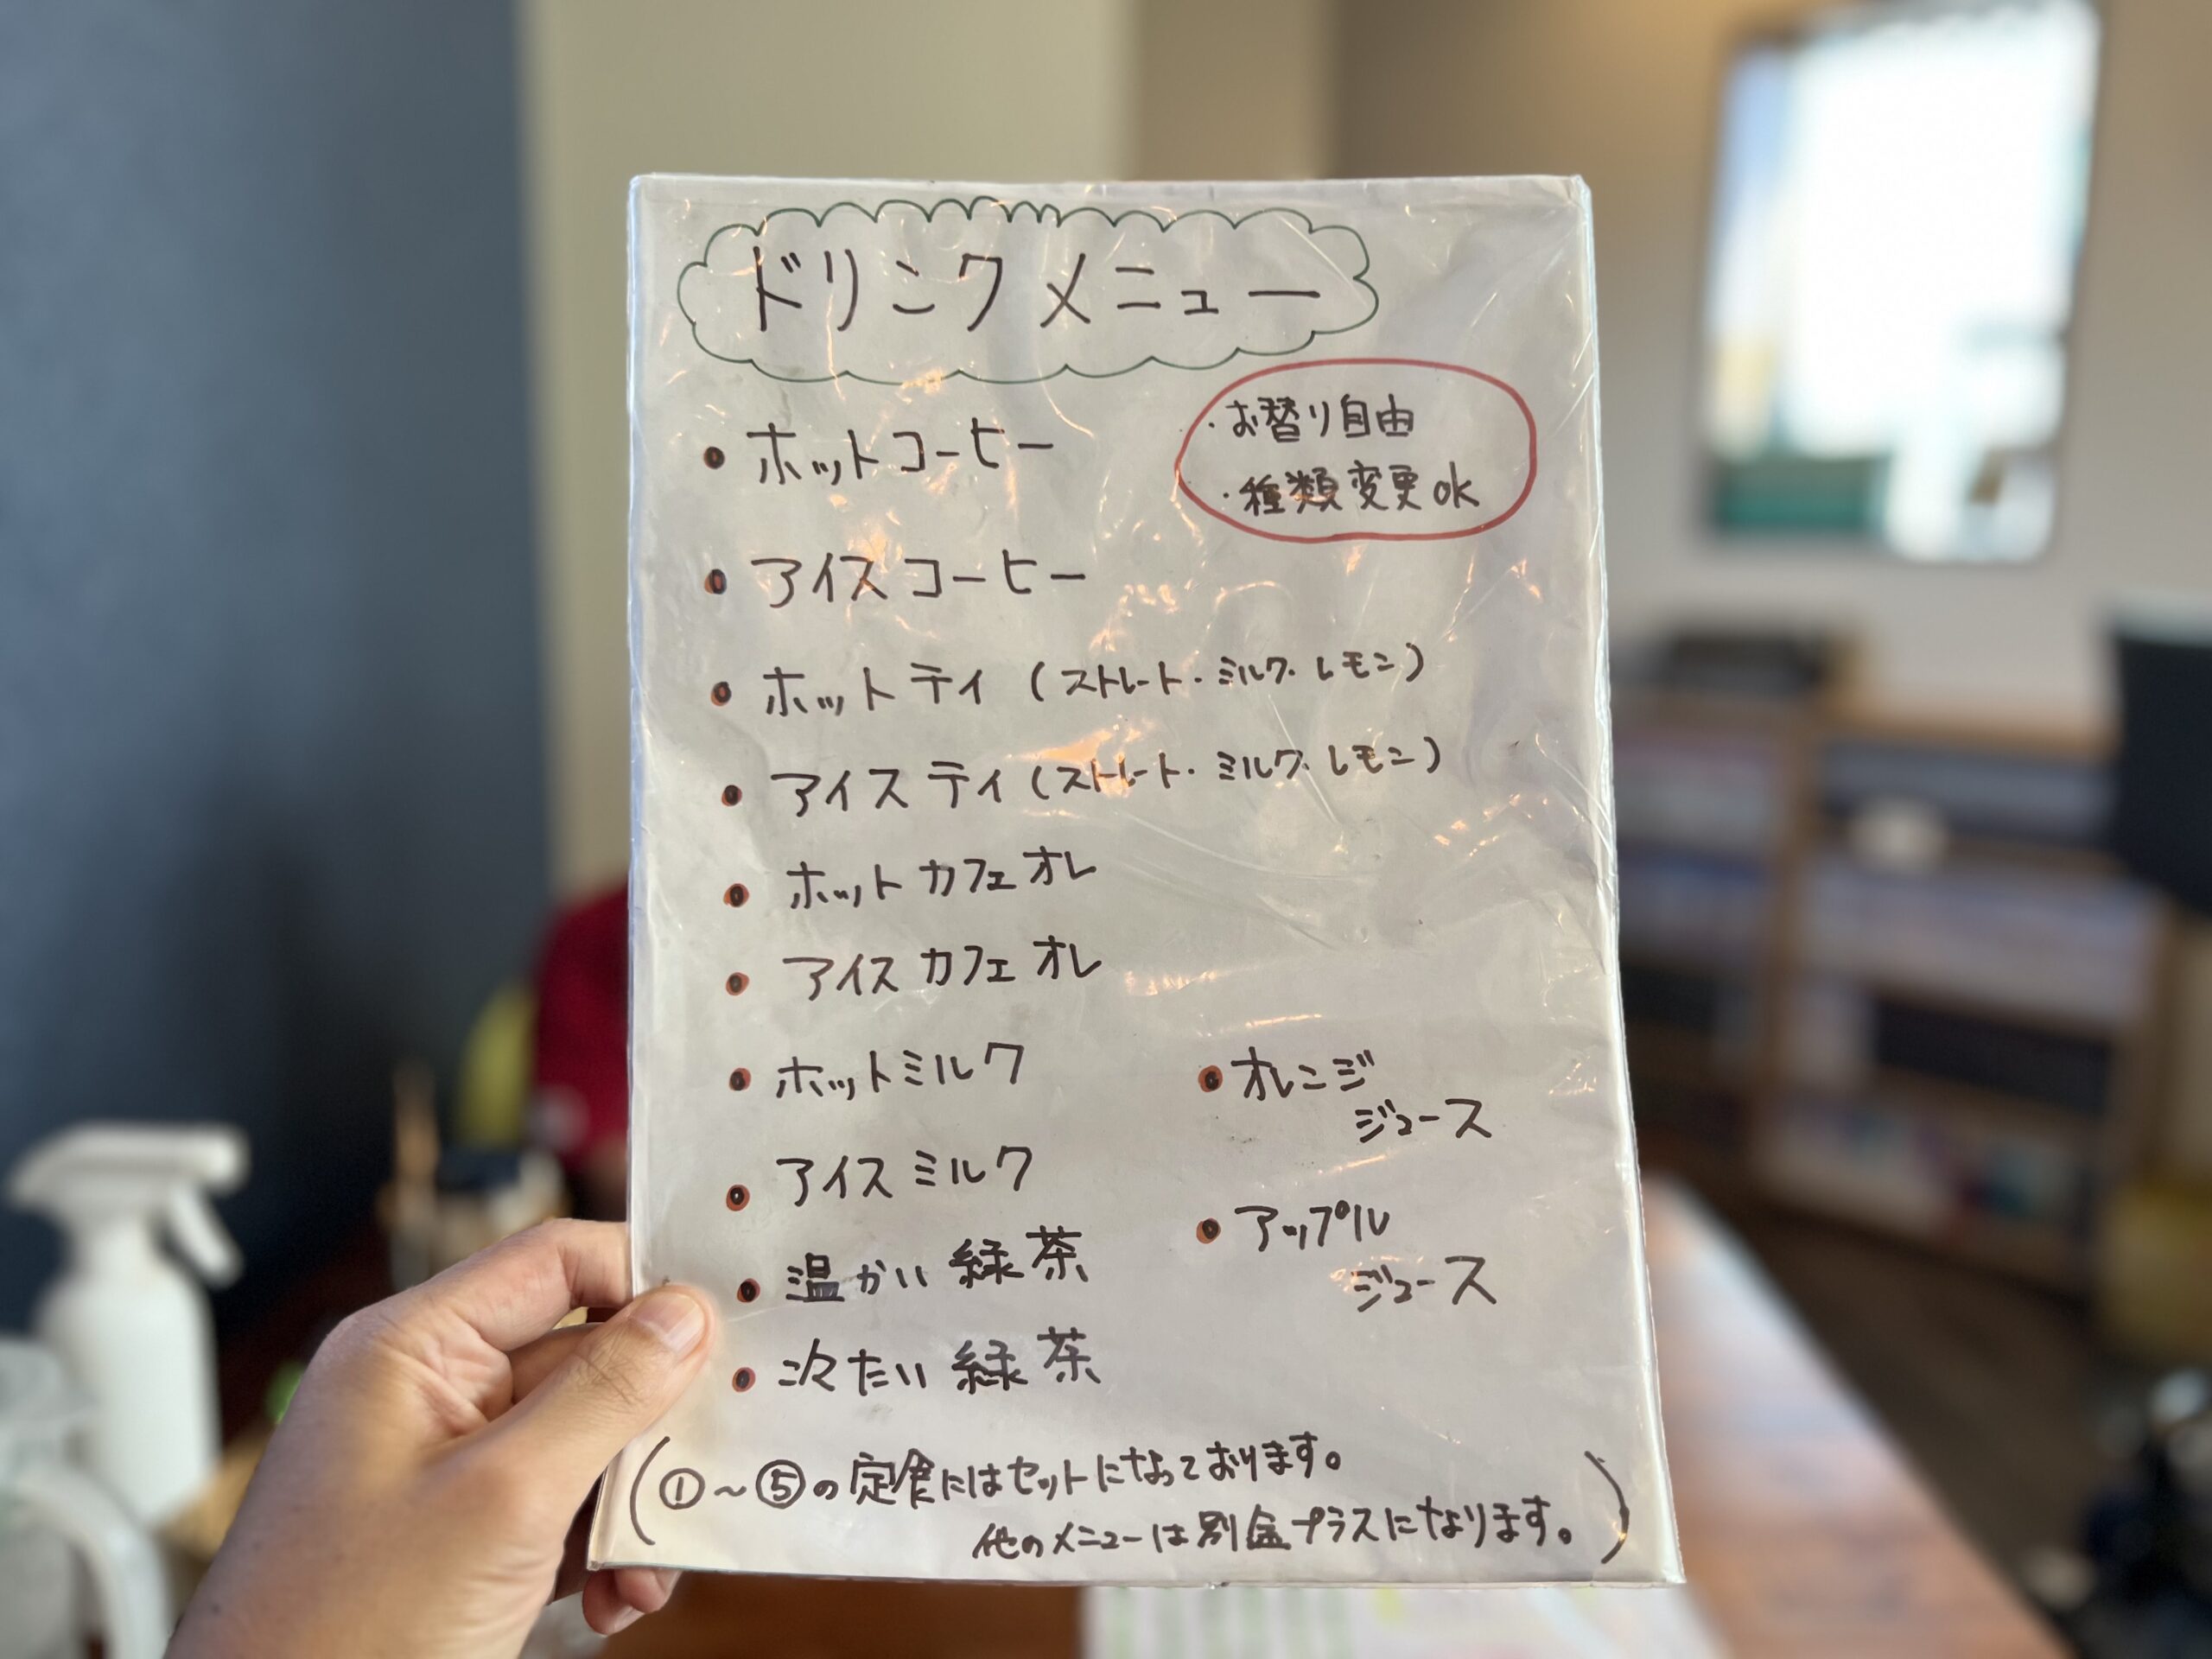 ドリンクメニュー
・お替り自由
・種類変更ok
• ホットコーヒー
• アイスコーヒー
• ホットティ (ストレート・ミルク・レモン)
• アイスティ (ストレート・ミルク・レモン)
• ホットカフェオレ
• アイスカフェオレ
• ホットミルク
• アイスミルク
• 温かい緑茶
• 冷たい緑茶
• オレンジ
ジュース
• アップル
ジュース
(①〜⑤の定食にはセットになっております。
他のメニューは別金プラスになります。)